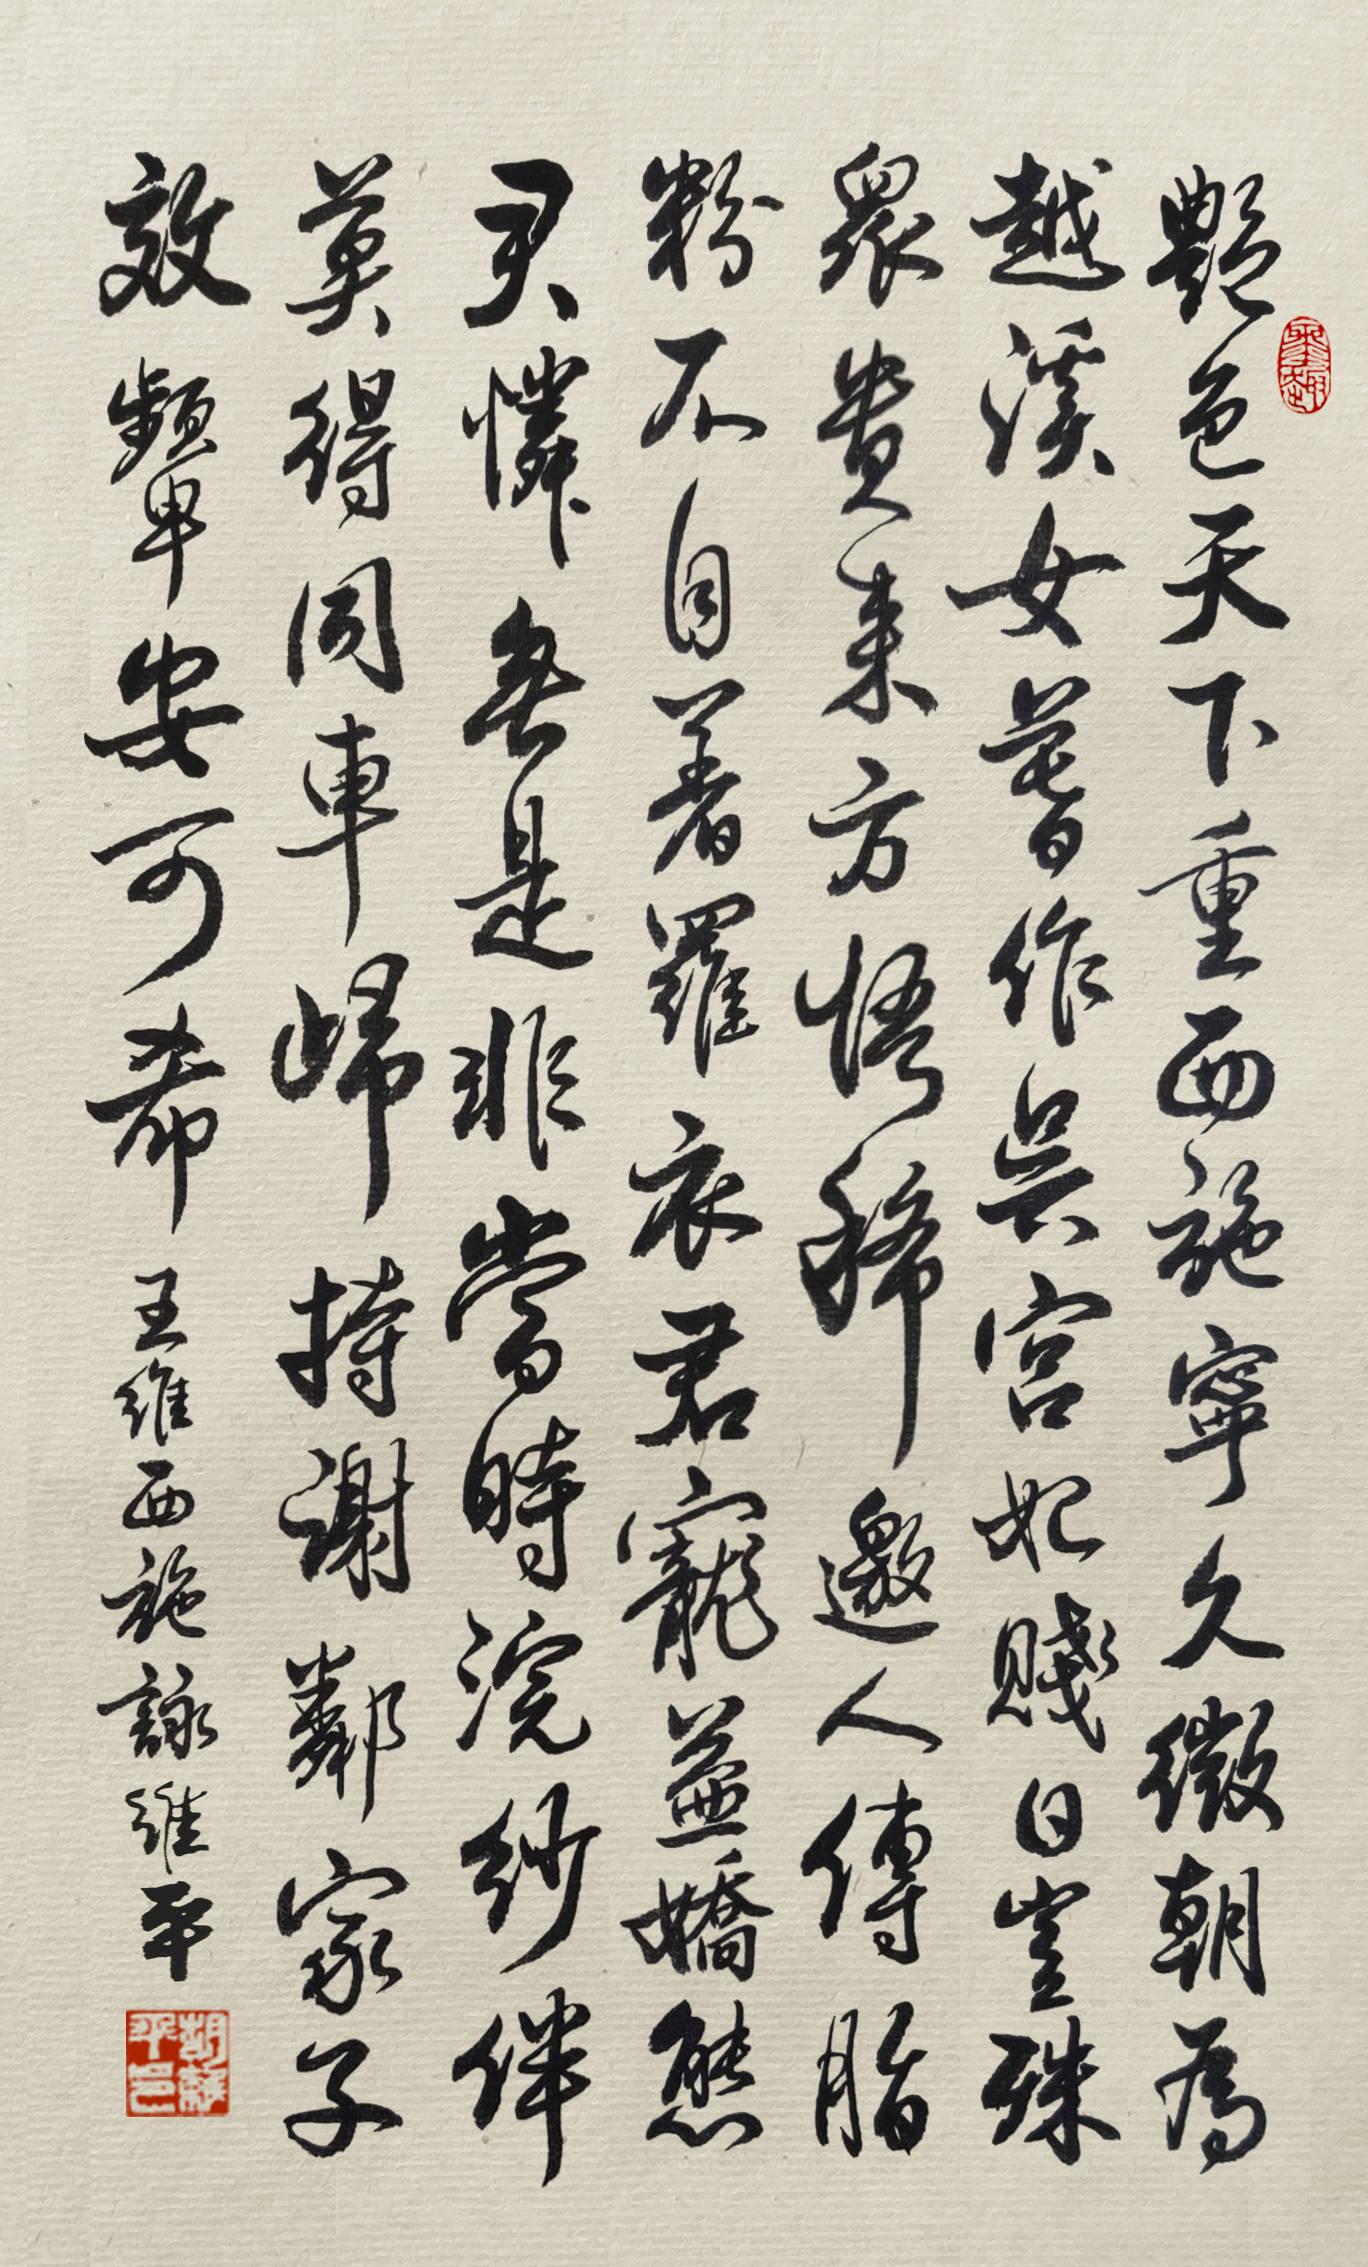 豔色天下重西施寧久微朝為
越溪女暮作吳宮妃賤日豈殊
眾貴來方悟稀邀人傅脂
粉不自著羅衣君寵益嬌態
君憐無是非當時浣紗伴
莫得同車歸持謝鄰家子
效顰安可希 王維西施詠維平
胡維平印